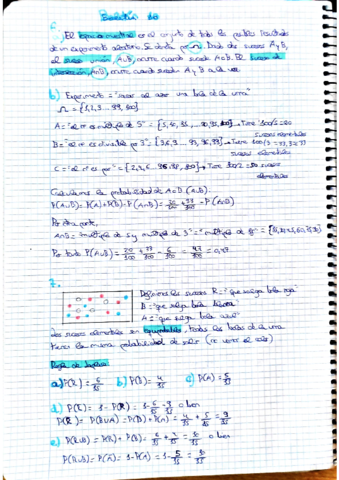 Boletín 10
6.
El espacio muestral es el conjunto de todos los posibles resultados
de un experimento aleatorio. Se denota por Ω. Dados dos sucesos A y B,
el suceso unión, A∪B, ocurre cuando sucede A o B. El suceso
intersección, A∩B, ocurre cuando suceden A y B a la vez.
b) Experimento = "sacar al azar una bola de la urna"
Ω = {1,2,3 ... 99, 100}
A = "el nº es múltiplo de 5" = {5, 10, 15, ... 90, 95, 100} → Tiene 100/5 = 20
sucesos elementales
B = "el nº es divisible por 3" = {3,6,9 ... 93, 96, 99} → Tiene 100/3 = 33,3 ≈ 33
sucesos elementales
C = "el nº es par" = {2, 4, 6 ... 96, 98, 100} → Tiene 100/2 = 50 sucesos
elementales
Calculamos la probabilidad de A∪B
P(A∪B) = P(A) + P(B) - P(A∩B) = 20/100 + 33/100 - P(A∩B)
Por otra parte,
A∩B = "múltiplo de 5 y múltiplo de 3" =
Por tanto P(A∪B) = 20/100 + 33/100 - 6/100 = 47/100 = 0,47
7.
Definimos los sucesos R = "que salga bola roja"
B = "que salga bola blanca"
A = "que salga bola azul"
Los sucesos elementales son equiprobables, todas las bolas de la urna
tienen la misma probabilidad de salir
Regla de Laplace
a) P(R) = 6/15 b) P(B) = 4/15 c) P(A) = 5/15
d) P(R̄) = 1 - P(R) = 1 - 6/15 = 9/15 o bien
P(R̄) = P(B∪A) = P(B) + P(A) = 4/15 + 5/15 = 9/15
e) P(R∪B) = P(R) + P(B) = 6/15 + 4/15 = 10/15 o bien
P(R∪B) = P(Ā) = 1 - P(A) = 1 - 5/15 = 10/15